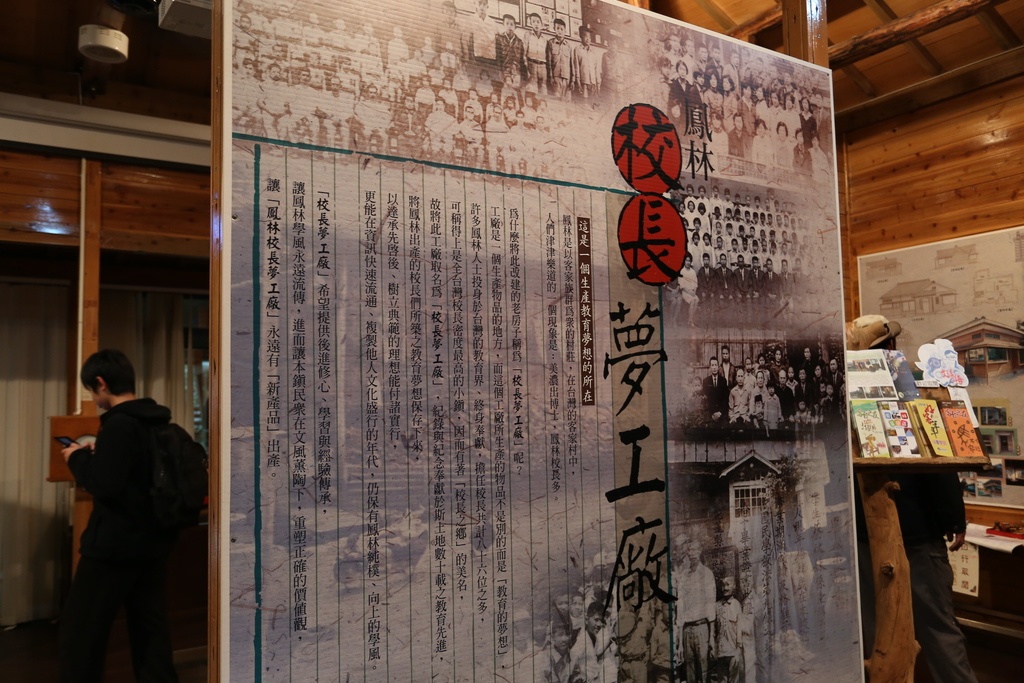 鳳林
校長夢工廠
這是一個生產教育夢想的所在
鳳林是以客家族群為眾的村莊，在台灣的客家村中，
人們津津樂道的一個現象是：美濃出博士，鳳林校長多
為什麼將此改建的老房子稱為「校長夢工廠」呢？
工廠是一個生產物品的地方，而這個工廠所生產的物品不是別的而是「教育的夢想」
許多鳳林人士投身於台灣的教育界、終身奉獻，擔任校長共計八十六位之多，
可稱得上是全台灣校長密度最高的小鎮，因而有著「校長之鄉」的美名，
故將此工廠取名為「校長夢工廠」，紀錄與紀念奉獻於斯土地數十載之教育先進，
將鳳林出產的校長們所築之教育夢想保存下來，
以達承先啓後、樹立典範的理想能付諸實行，
更能在資訊快速流通、複製他人文化盛行的年代，仍保有鳳林純樸、向上的學風。
「校長夢工廠」希望提供後進修心、學習與經驗傳承，
讓鳳林學風永遠流傳，進而讓本鎮民眾在文風薰陶下，重塑正確的價值觀，
讓「鳳林校長夢工廠」永遠有「新產品」出產。